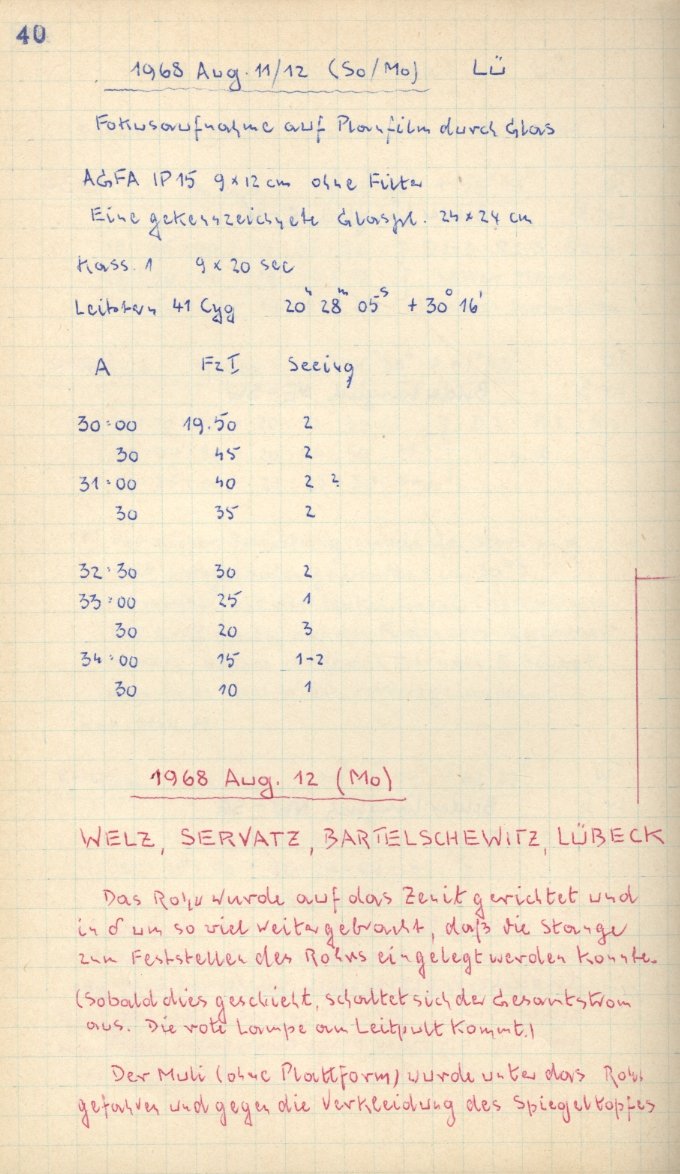 40
1968 Aug. 11/12 (So/Mo) LÜ
Fokusaufnahme auf Planfilm durch Glas
AGFA IP 15 9 x 12 cm ohne Filter
Eine gekennzeichnete Glaspl. 24 x 24 cm
Kass. 1 9 x 20 sec
Leitstern 41 Cyg 20h 28m 05s + 30° 16'
A FzI Seeing
30:00 19.50 2
30 45 2
31:00 40 2 ?
30 35 2
32:30 30 2
33:00 25 1
30 20 3
34:00 15 1-2
30 10 1
1968 Aug. 12 (Mo)
WELZ, SERVATZ, BARTELSCHEWITZ, LÜBECK
Das Rohr wurde auf das Zenit gerichtet und
in δ um so viel weitergebracht, daß die Stange
zum Feststellen des Rohrs eingelegt werden konnte.
(Sobald dies geschieht, schaltet sich der Gesamtstrom
aus. Die rote Lampe am Leitpult kommt.)
Der Muli (ohne Plattform) wurde unter das Rohr
gefahren und gegen die Verkleidung des Spiegeltopfes